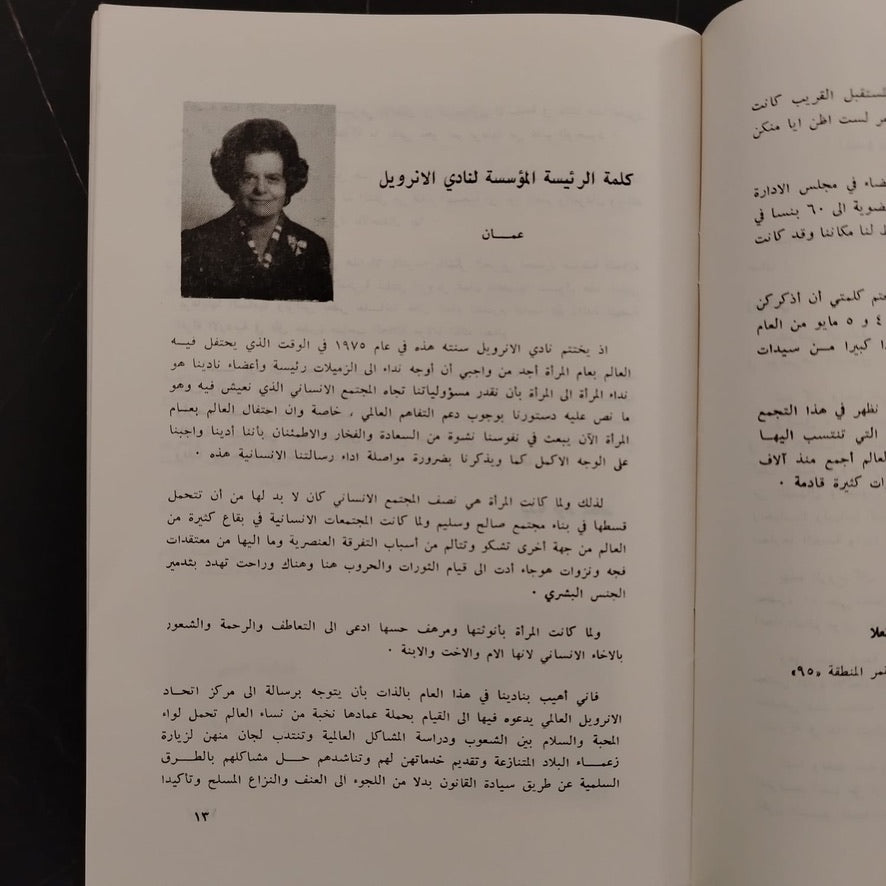 كلمة الرئيسة المؤسسة لنادي الانرويل
عمـــان
اذ يختتم نادي الانرويل سنته هذه في عام ١٩٧٥ في الوقت الذي يحتفل فيـــه
العالم بعام المرأة أجد من واجبي أن أوجه نداء الى الزميلات رئيسة وأعضاء نادينا هو
نداء المرأة الى المرأة بأن نقدر مسؤولياتنا تجاه المجتمع الانساني الذي نعيش فيه وهو
ما نص عليه دستورنا بوجوب دعم التفاهم العالمي ، خاصة وان احتفال العالم بعـــام
المرأة الآن يبعث في نفوسنا نشوة من السعادة والفخار والاطمئنان بأننا أدينا واجبنا
على الوجه الاكمل كما ويذكرنا بضرورة مواصلة اداء رسالتنا الانسانية هذه .
لذلك ولما كانت المرأة هي نصف المجتمع الانساني كان لا بد لها من أن تتحمل
قسطها في بناء مجتمع صالح وسليم ولما كانت المجتمعات الانسانية في بقاع كثيرة من
العالم من جهة أخرى تشكو وتتألم من أسباب التفرقة العنصرية وما اليها من معتقدات
فجه ونزوات هوجاء أدت الى قيام الثورات والحروب هنا وهناك وراحت تهدد بتدمير
الجنس البشري .
ولما كانت المرأة بأنوثتها ومرهف حسها ادعى الى التعاطف والرحمة والشعور
بالاخاء الانساني لانها الام والاخت والابنة .
فاني أهيب بنادينا في هذا العام بالذات بأن يتوجه برسالة الى مركز اتحـــاد
الانرويل العالمي يدعوه فيها الى القيام بحملة عمادها نخبة من نساء العالم تحمل لواء
المحبة والسلام بين الشعوب ودراسة المشاكل العالمية وتنتدب لجان منهن لزيارة
زعمـــاء البلاد المتنازعة وتقديم خدماتهن لهم وتناشدهم حـــل مشاكلهم بالطرق
السلمية عن طريق سيادة القانون بدلا من اللجوء الى العنف والنزاع المسلح وتأكيدا
١٣
ستقبل القريب كانت
ر لست اظن ايا منكن
ضاء في مجلس الادارة
ضوية الى ٦٠ بنسا في
لنا مكاننا وقد كانت
تم كلمتي أن أذكركن
٤ و ٥ مايو من العام
ا كبيرا مـــن سيدات
نظهر في هذا التجمع
التي تنتسب اليهـــا
لعالم أجمع منذ آلاف
ات كثيرة قادمة .
علا
تمر المنطقة «٩٥»